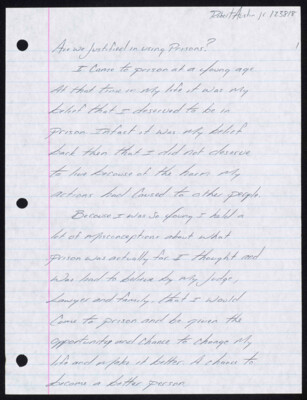 1
Are we justified in using Prisons?
I Came to prison at a young age
At that time in My life it was My
belief that I deserved to be in
prison. Infact it was My belief
back then that I did not deserve
to live because of the harm My
actions had Caused to other people.
Because I was so young I held a
lot of misconceptions about what
prison was actually for. I thought and
was lead to believe by My Judge,
Lawyer and family that I would
Come to prison and be given the
opportunity and chance to change My
life and make it better. A chance to
become a better person